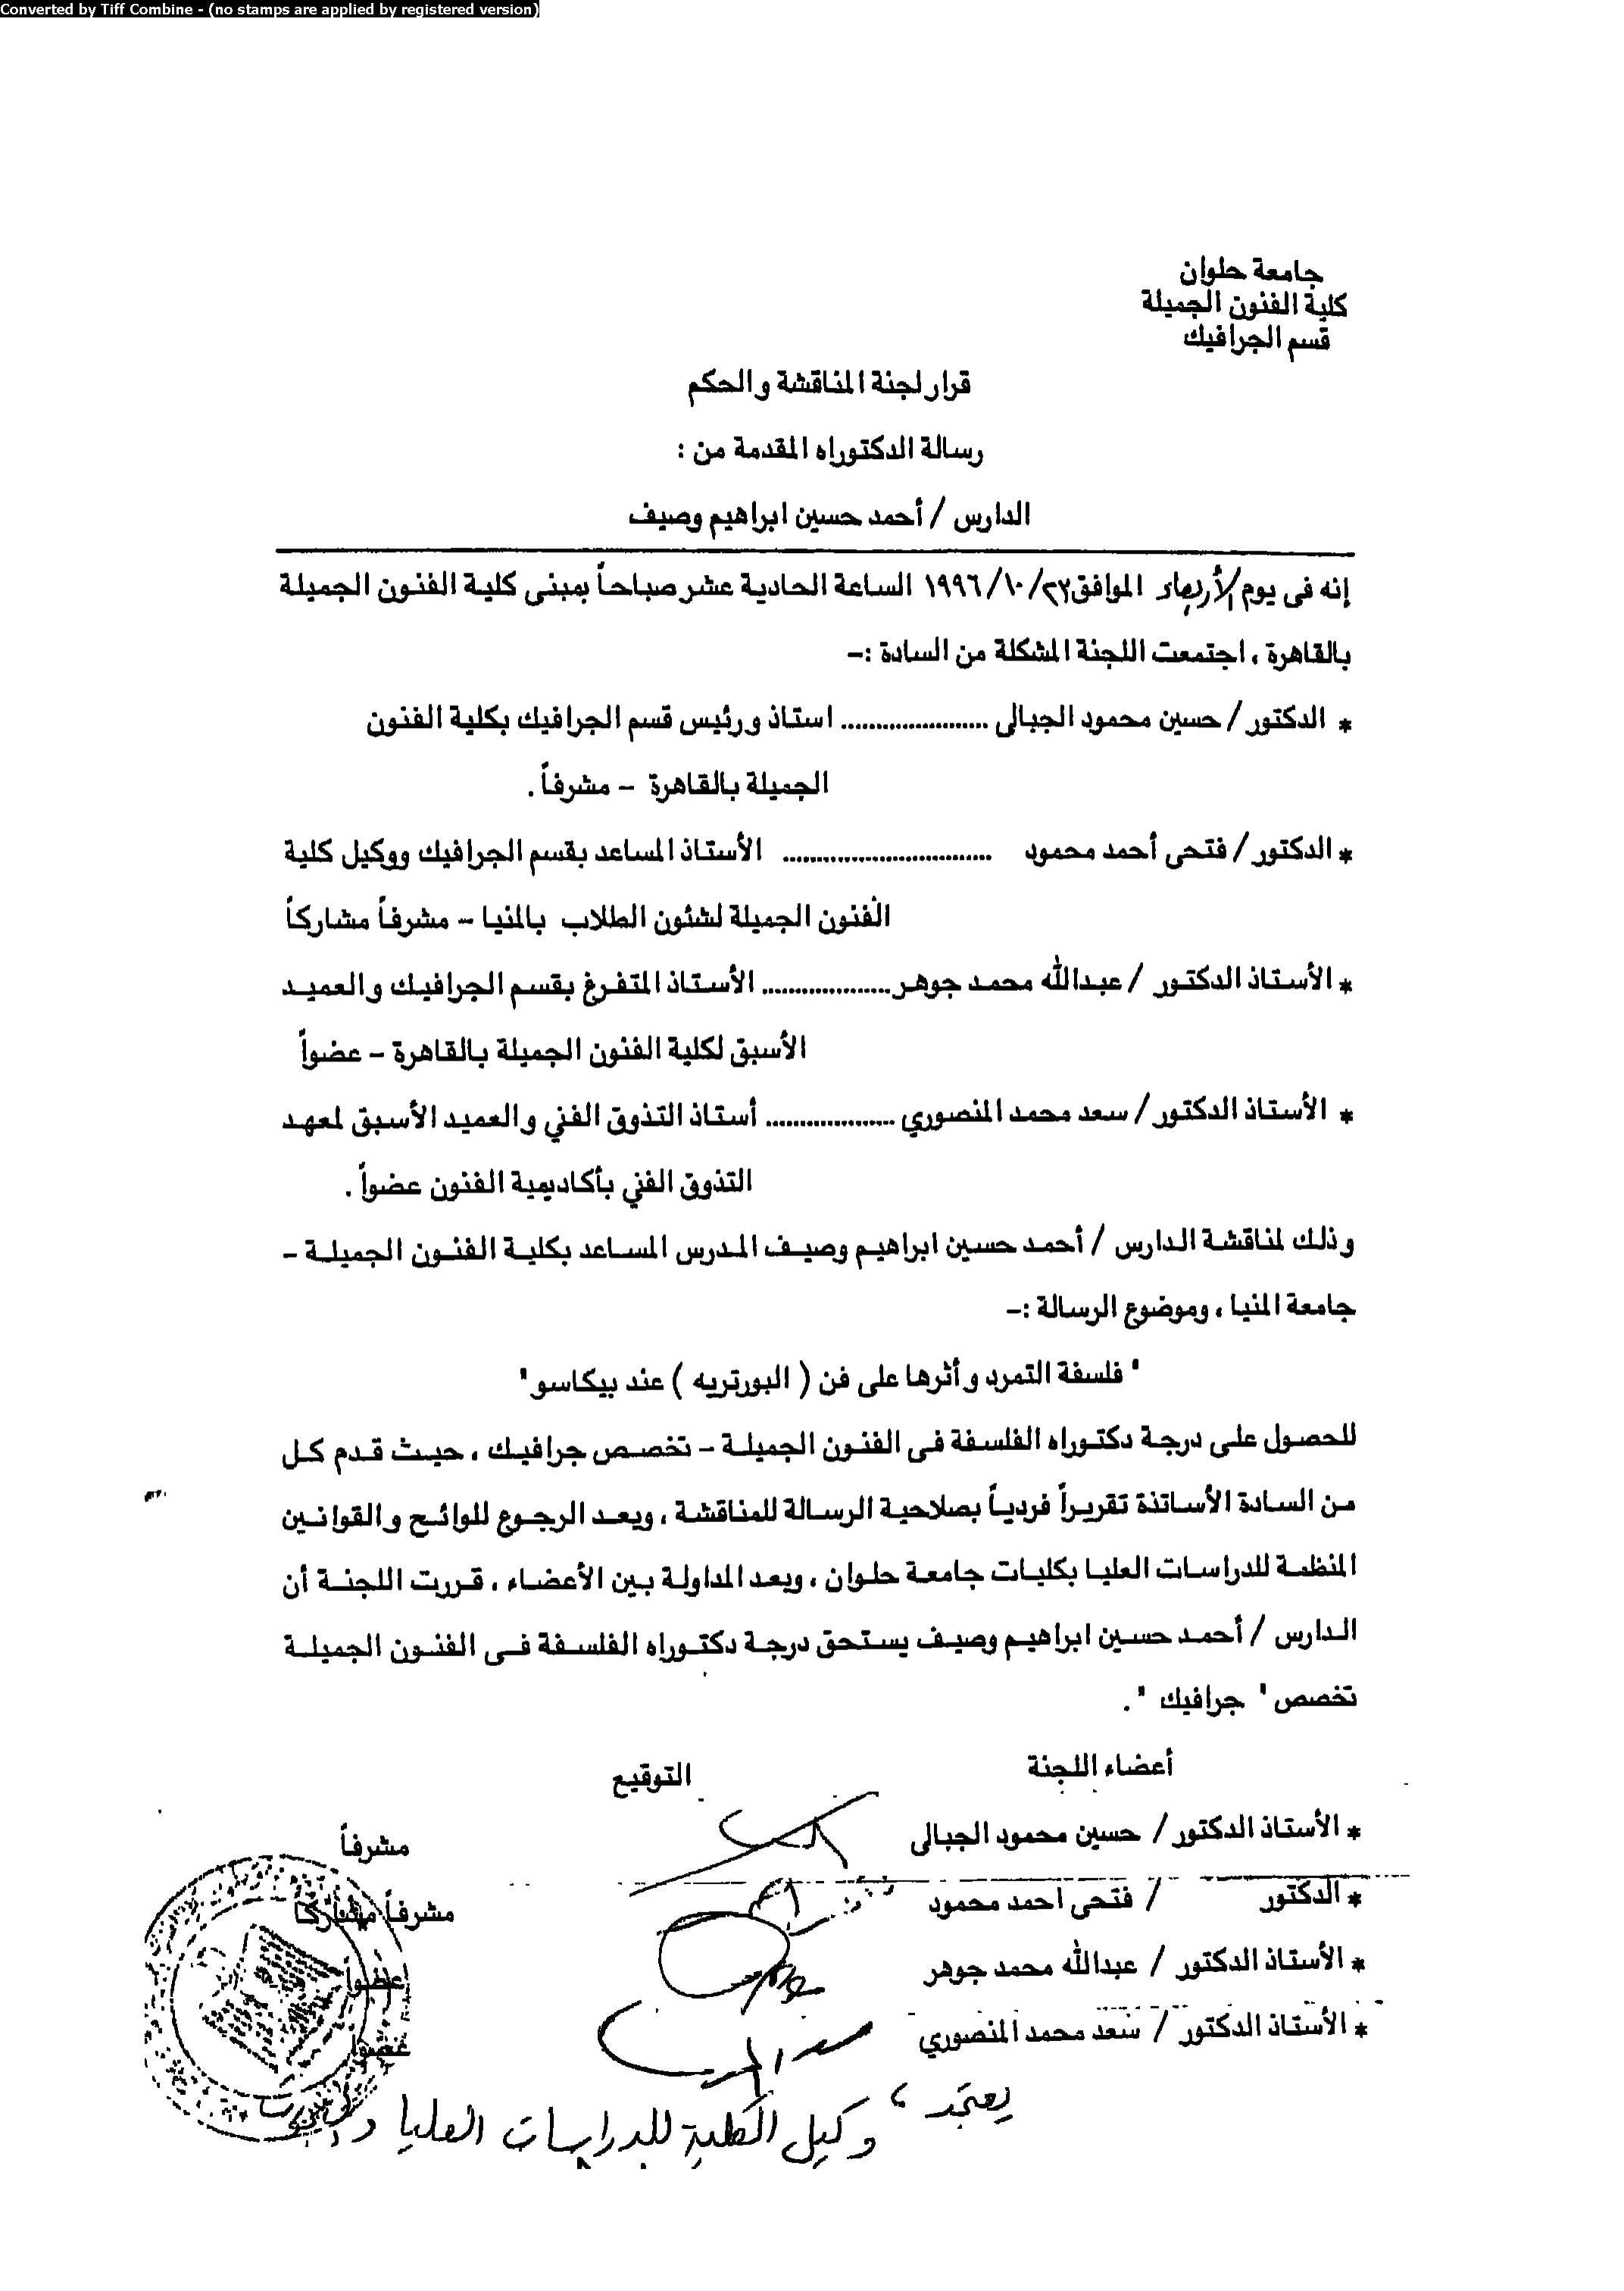 Converted by Tiff Combine - (no stamps are applied by registered version)
جامعة حلوان
كلية الفنون الجميلة
قسم الجرافيك
قرار لجنة المناقشة والحكم
رسالة الدكتوراه المقدمة من :
الدارس / أحمد حسين ابراهيم وصيف
إنه فى يوم الأربعاء الموافق ٢٣/١٠/١٩٩٦ الساعة الحادية عشر صباحاً بمبنى كلية الفنون الجميلة
بالقاهرة ، اجتمعت اللجنة المشكلة من السادة :-
* الدكتور / حسين محمود الجبالى ..................... استاذ ورئيس قسم الجرافيك بكلية الفنون
الجميلة بالقاهرة - مشرفاً .
* الدكتور / فتحى أحمد محمود .............................. الأستاذ المساعد بقسم الجرافيك ووكيل كلية
الفنون الجميلة لشئون الطلاب بالمنيا - مشرفاً مشاركاً
* الأستاذ الدكتور / عبدالله محمد جوهر ................... الأستاذ المتفرغ بقسم الجرافيك والعميد
الأسبق لكلية الفنون الجميلة بالقاهرة - عضواً
* الأستاذ الدكتور / سعد محمد المنصوري ................... أستاذ التذوق الفني والعميد الأسبق لمعهد
التذوق الفني بأكاديمية الفنون عضواً .
وذلك لمناقشة الدارس / أحمد حسين ابراهيم وصيف المدرس المساعد بكلية الفنون الجميلة -
جامعة المنيا ، وموضوع الرسالة :-
" فلسفة التمرد وأثرها على فن ( البورتريه ) عند بيكاسو "
للحصول على درجة دكتوراه الفلسفة فى الفنون الجميلة - تخصص جرافيك ، حيث قدم كل
من السادة الأساتذة تقريراً فردياً بصلاحية الرسالة للمناقشة ، وبعد الرجوع للوائح والقوانين
المنظمة للدراسات العليا بكليات جامعة حلوان ، وبعد المداولة بين الأعضاء ، قررت اللجنة أن
الدارس / أحمد حسين ابراهيم وصيف يستحق درجة دكتوراه الفلسفة فى الفنون الجميلة
تخصص " جرافيك " .
أعضاء اللجنة التوقيع
* الأستاذ الدكتور / حسين محمود الجبالى مشرفاً
* الدكتور / فتحى احمد محمود مشرفاً مشاركاً
* الأستاذ الدكتور / عبدالله محمد جوهر عضواً
* الأستاذ الدكتور / سعد محمد المنصوري عضواً
يعتمد ،
وكيل الكلية للدراسات العليا